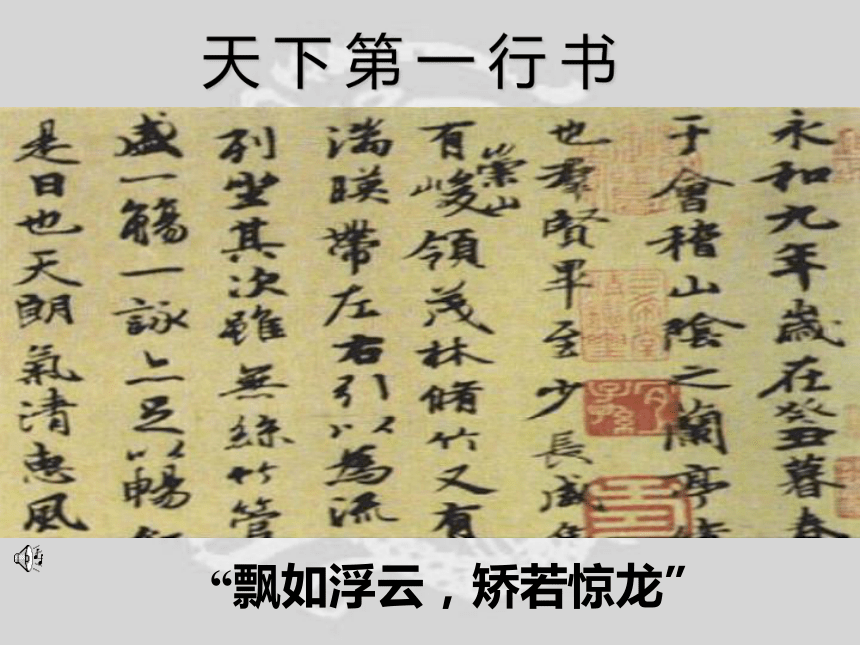 天下第一行书
永和九年歲在癸丑暮春
于會稽山陰之蘭亭脩
也羣賢畢至少長咸
有崇山峻領茂林脩竹又有
湍暎帶左右引以為流
列坐其次雖無絲竹管
盛一觴一詠亦足以暢
是日也天朗氣清惠風
“飘如浮云，矫若惊龙”